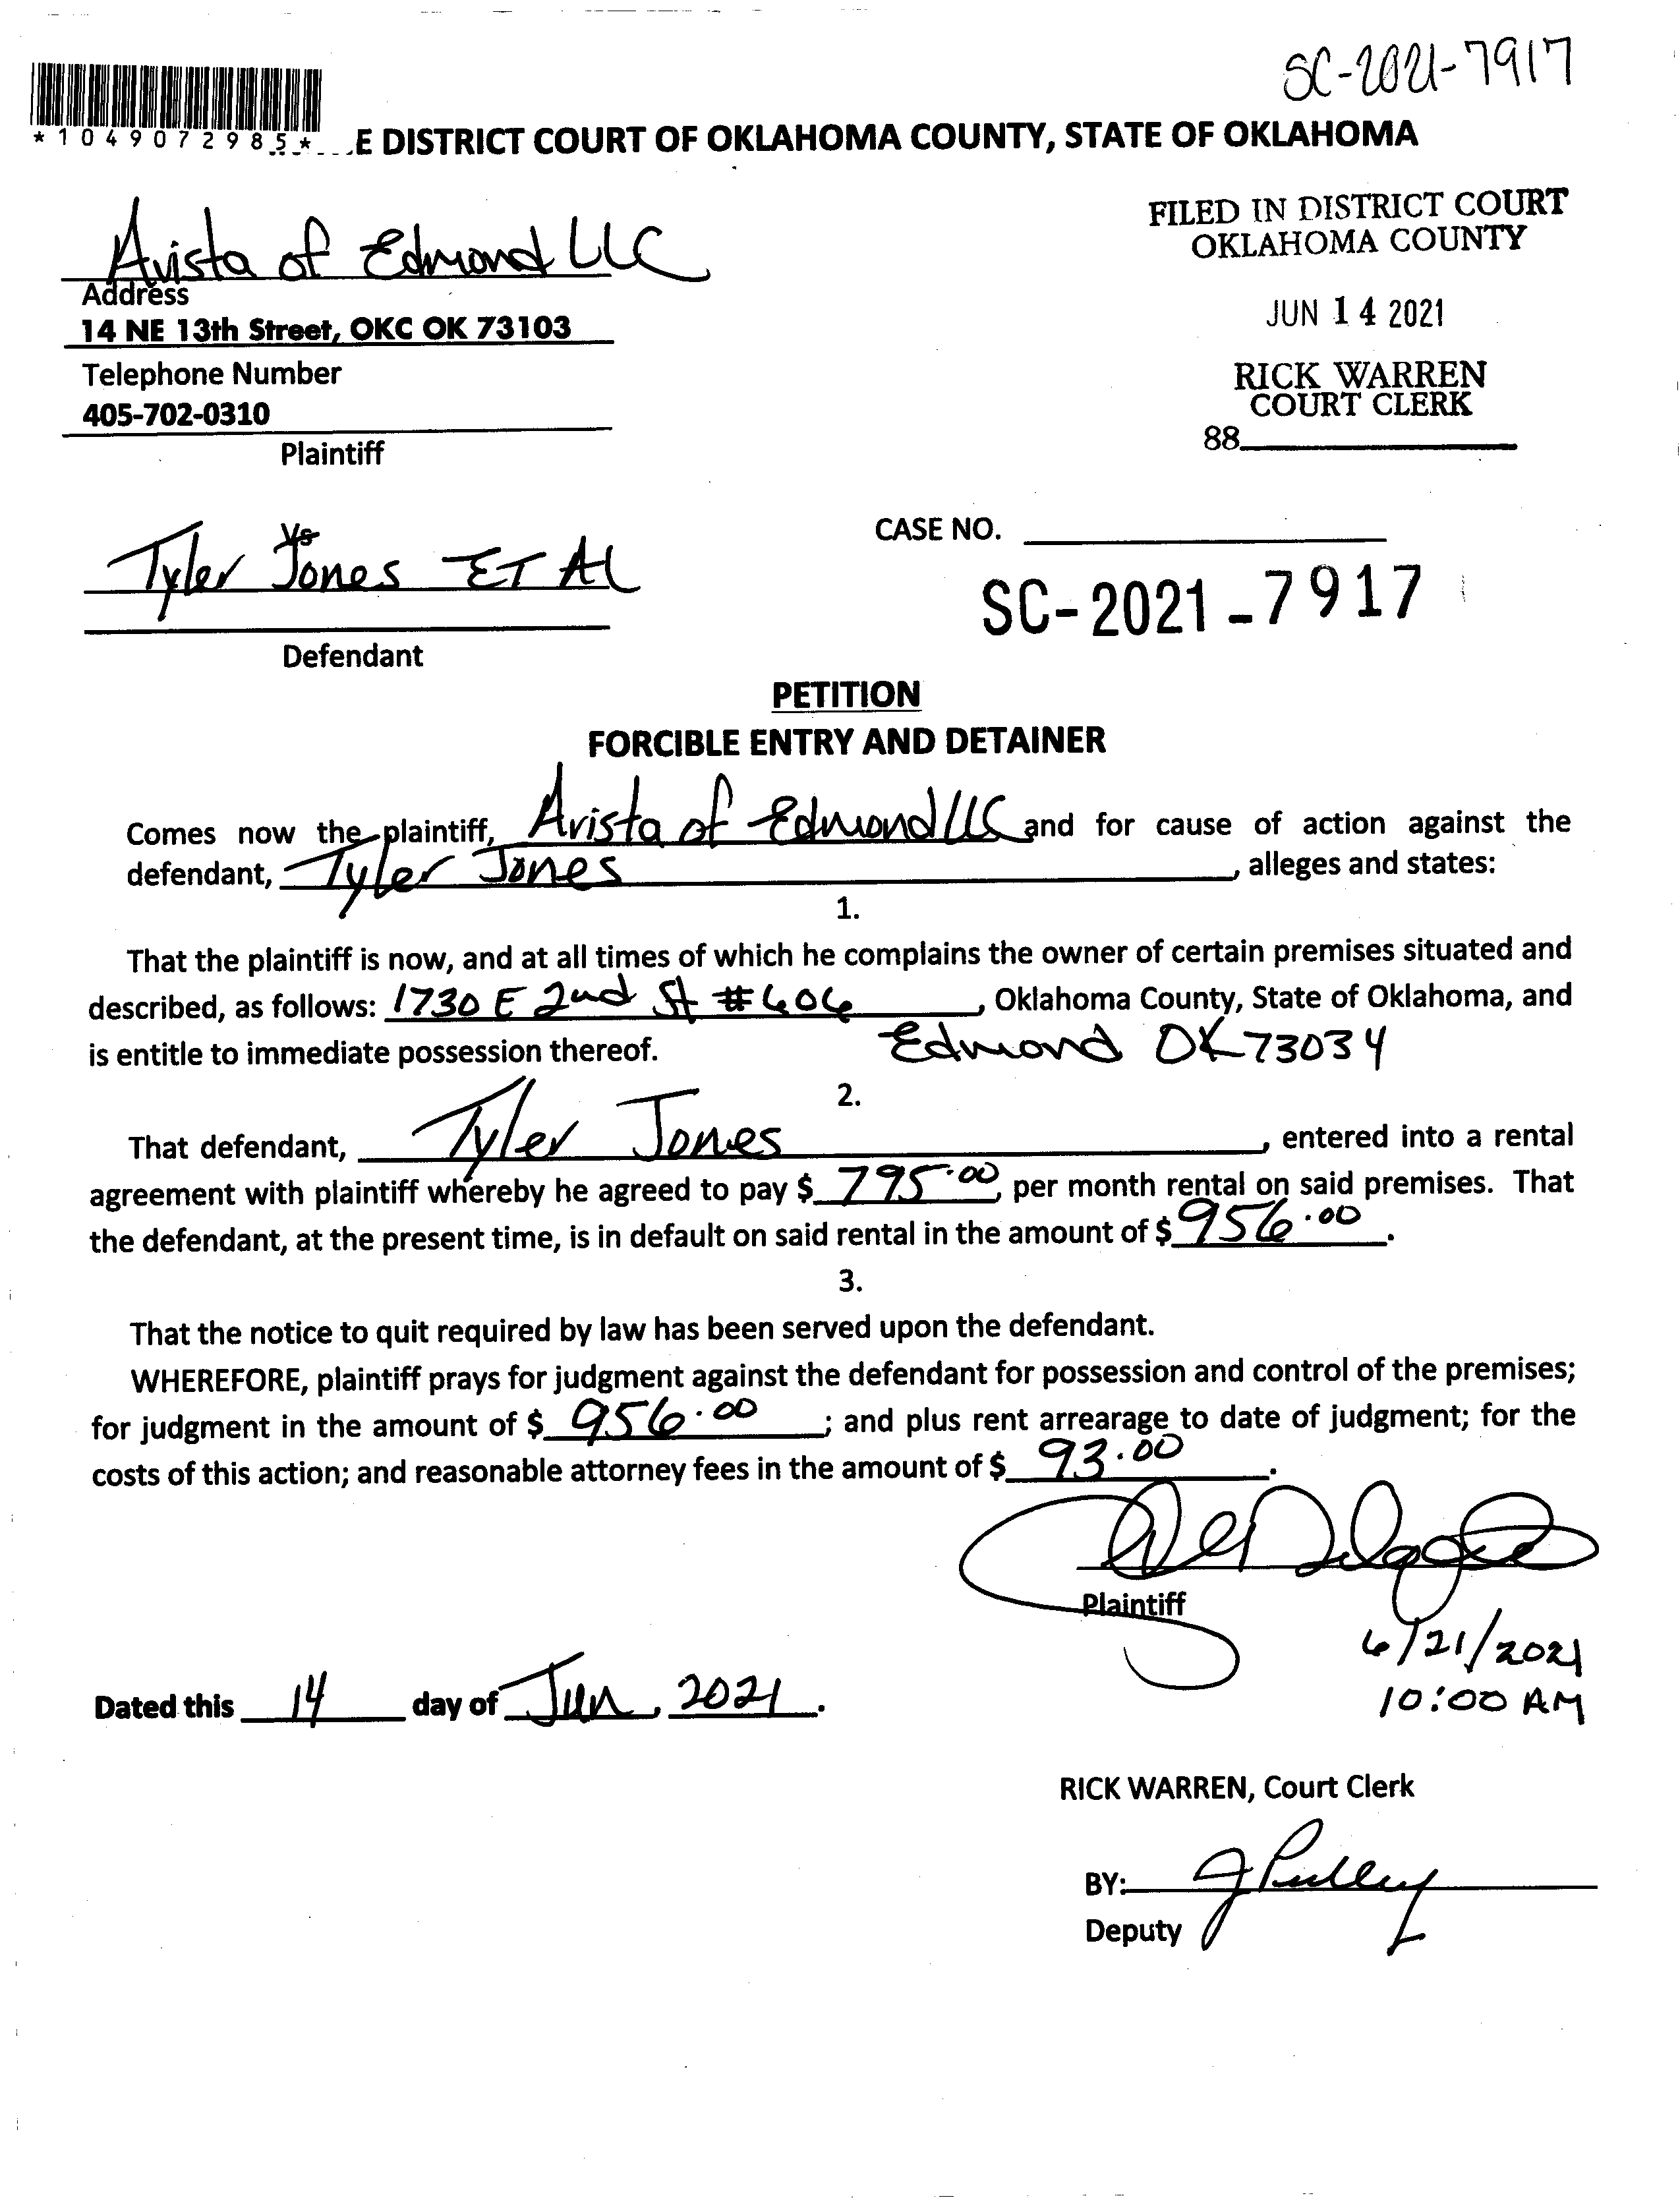 SC-2021-7917
*1049072985*
E DISTRICT COURT OF OKLAHOMA COUNTY, STATE OF OKLAHOMA
Avista of Edmond LLC
Address
14 NE 13th Street, OKC OK 73103
Telephone Number
405-702-0310
Plaintiff
FILED IN DISTRICT COURT
OKLAHOMA COUNTY
JUN 14 2021
RICK WARREN
COURT CLERK
88
Vs
Tyler Jones ET AL
Defendant
CASE NO.
SC-2021-7917
PETITION
FORCIBLE ENTRY AND DETAINER
Comes now the plaintiff, Avista of Edmond LLC and for cause of action against the
defendant, Tyler Jones, alleges and states:
1.
That the plaintiff is now, and at all times of which he complains the owner of certain premises situated and
described, as follows: 1730 E 2nd St #606, Oklahoma County, State of Oklahoma, and
is entitle to immediate possession thereof. Edmond OK 73034
2.
That defendant, Tyler Jones, entered into a rental
agreement with plaintiff whereby he agreed to pay $ 795.00, per month rental on said premises. That
the defendant, at the present time, is in default on said rental in the amount of $ 956.00.
3.
That the notice to quit required by law has been served upon the defendant.
WHEREFORE, plaintiff prays for judgment against the defendant for possession and control of the premises;
for judgment in the amount of $ 956.00; and plus rent arrearage to date of judgment; for the
costs of this action; and reasonable attorney fees in the amount of $ 93.00.
Plaintiff
6/21/2021
10:00 AM
Dated this 14 day of Jun, 2021.
RICK WARREN, Court Clerk
BY:
Deputy